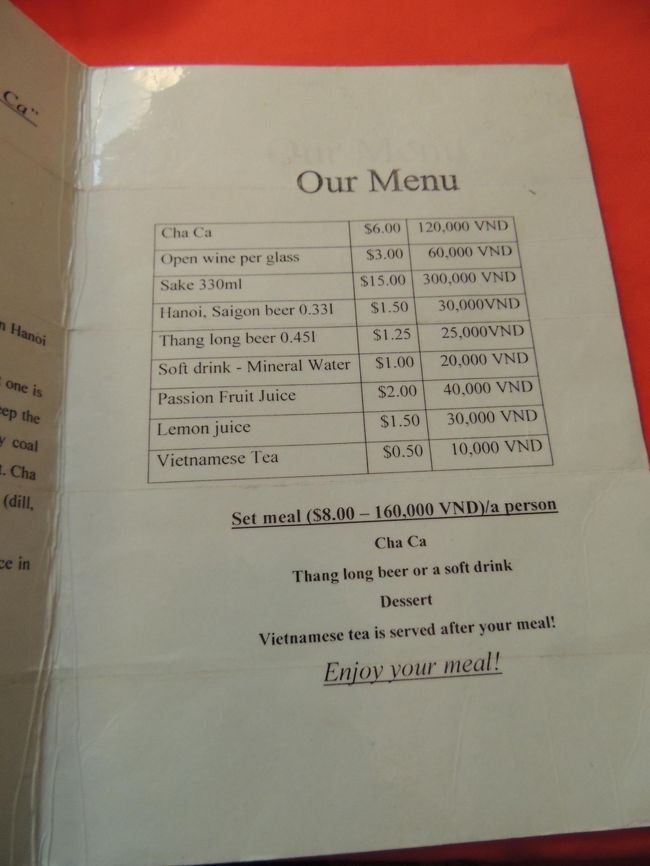 Ca"
n Hanoi
one is
eep the
y coal
. Cha
(dill,
ce in
Our Menu
Cha Ca $6.00 120,000 VND
Open wine per glass $3.00 60,000 VND
Sake 330ml $15.00 300,000 VND
Hanoi, Saigon beer 0.33l $1.50 30,000VND
Thang long beer 0.45l $1.25 25,000VND
Soft drink - Mineral Water $1.00 20,000 VND
Passion Fruit Juice $2.00 40,000 VND
Lemon juice $1.50 30,000 VND
Vietnamese Tea $0.50 10,000 VND
Set meal ($8.00 – 160,000 VND)/a person
Cha Ca
Thang long beer or a soft drink
Dessert
Vietnamese tea is served after your meal!
Enjoy your meal!